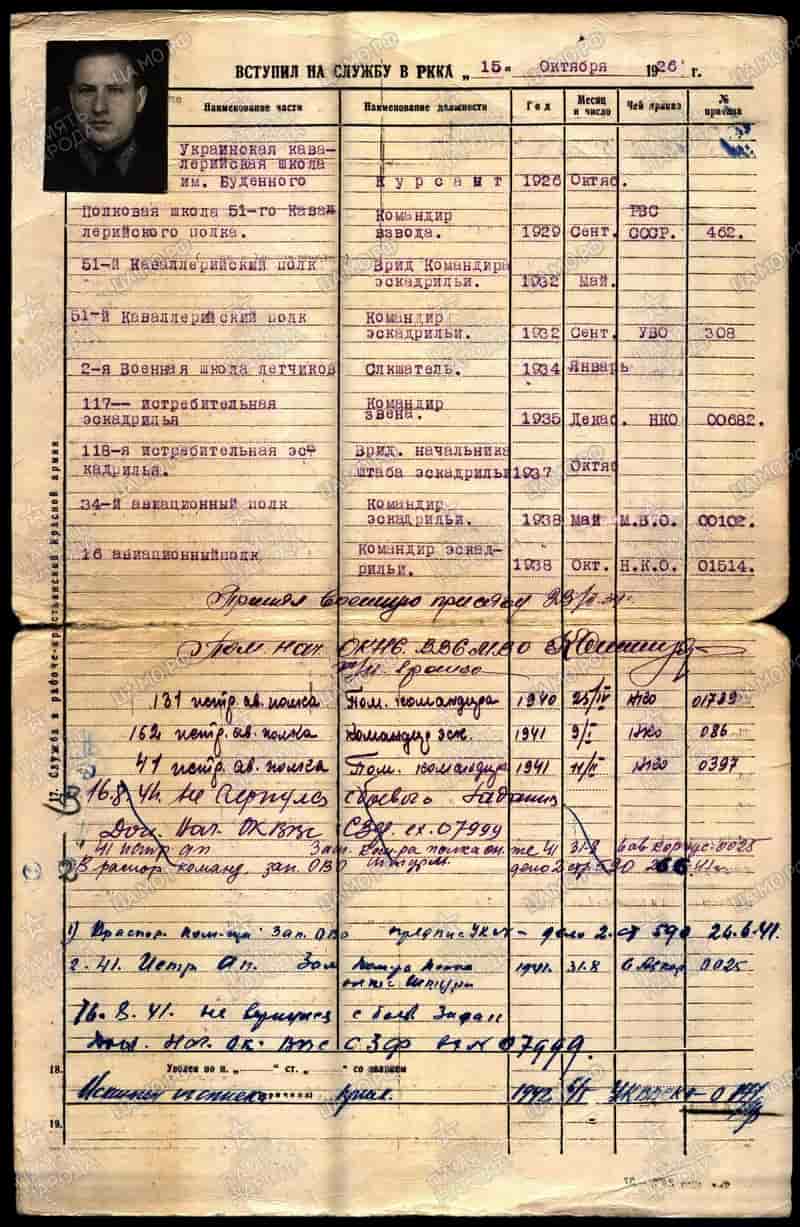 ВСТУПИЛ НА СЛУЖБУ В РККА „15" Октября 1926 г.
Наименование части Наименование должности Год Месяц и число Чей приказ № приказа
Украинская кава-
лерийская школа
им. Буденного Курсант 1926 Октяб.
Полковая школа 51-го Кавал Командир РВС
лерийского полка. взвода. 1929 Сент. СССР. 462.
51-й Каваллерийский полк Врид Командира
эскадрильи. 1932 Май.
51-й Каваллерийский полк Командир
эскадрильи. 1932 Сент. УВО 308
2-я Военная школа летчиков Слкшатель. 1934 Январь
117-- истребительная Командир
эскадрилья звена. 1935 Декаб. НКО 00682.
118-я истребительная эс- Врид. начальника
кадрилья. штаба эскадрильи 1937 Октяб
34-й авиационный полк Командир
эскадрильи. 1938 Май М.В.О. 00102.
16 авиационныйполк Командир эскад-
рильи. 1938 Окт. Н.К.О. 01514.
Принял военную присягу 23/II
Пом нач. ОКНБ. ВВС МВО
131 истр. ав. полка Пом. командира 1940 25/IV НКО
162 истр. ав. полка командир эск. 1941 9/I НКО 086
41 истр. ав. полка Пом. командира 1941 11/II НКО 0397
16.8.41. не вернулся с боевого задания
Дон. Нач. ОК ВВС СЗФ. вх. 07999
41 истр ап Зам. 41 31.8 0025
В распор. команд. зап. ОВО дело 2 стр 590
1) В распор. ком-ща Зап. ОВО предпис УК - дело 2. ст 590 26.6.41.
2. 41. Истр Ап. Зам 1941. 31.8 0025
16.8.41. не вернулся с боев Задан
Дон. Нач. ОК ВВС СЗФ 07999.
18. Уволен по п. „ " ст. „ " со званием
1942
19.
17. Служба в рабоче-крестьянской красной армии
ПАМЯТЬ НАРОДА
ЦАМО РФ